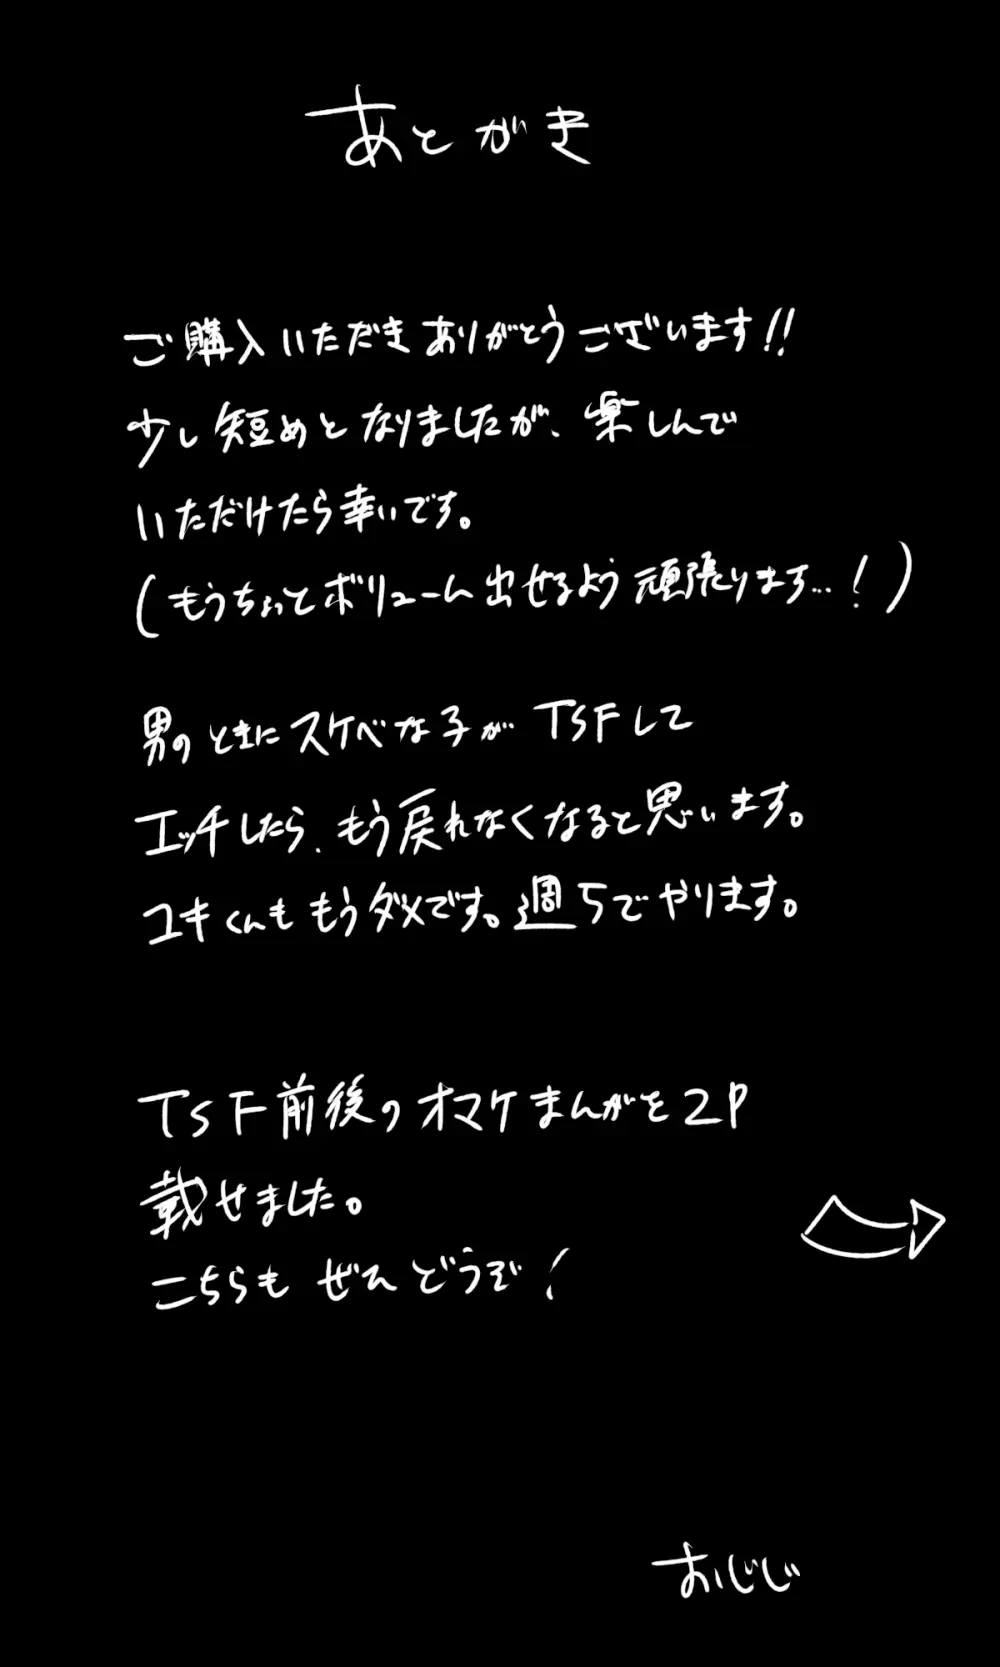 あとがき
ご購入いただきありがとうございます!!
少し短めとなりましたが、楽しんで
いただけたら幸いです。
(もうちょっとボリューム出せるよう頑張ります…!)
男のときにスケベな子がTSFして
エッチしたら、もう戻れなくなると思います。
ユキくんももうダメです。週5でやります。
TSF前後のオマケまんがを2P
載せました。
こちらもぜひどうぞ!
おいじじ